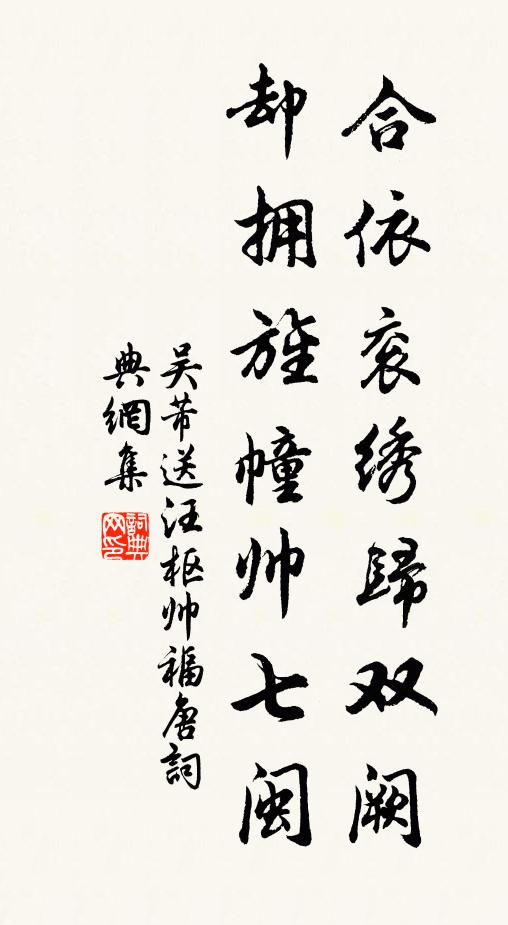 合依衮绣歸双阙
却拥旌幢帅七闽
吴芾送汪枢帅福唐詞
典網集
詞典網印